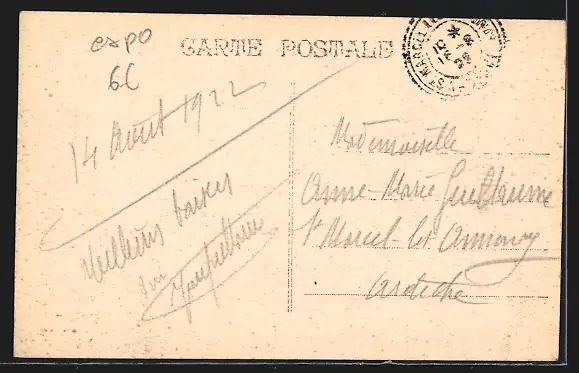 expo
6C
CARTE POSTALE
14 Août 1922
Meilleurs baisers
Mademoiselle
Anne-Marie Guilhaume
St Marcel-les-Annonay
Ardèche